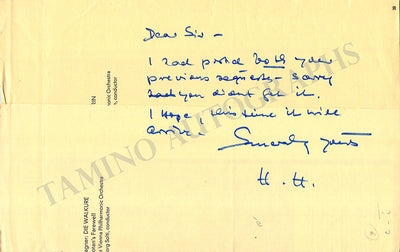 Dear Sir -
I had posted both your
previous requests - sorry
that you didn't get it.
I hope, this time it will
arrive!
Sincerely yours
H. H.
TAMINO AUTOGRAPHS
agner: DIE WALKÜRE
otan's Farewell
Vienna Philharmonic Orchestra
org Solti, conductor
onic Orchestra
, conductor